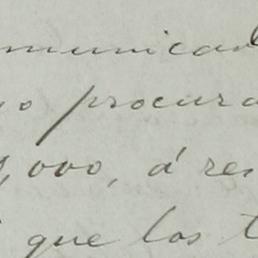 omunicad
o procura
,000, á res
que los t